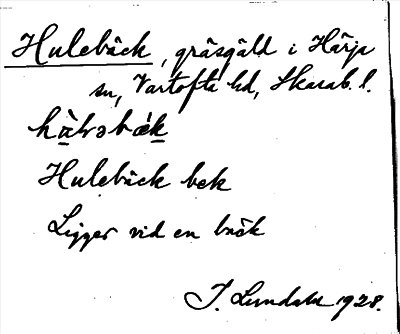 Hulebäck, gräsgäld i Härja
sn, Vartofta hd, Skarab. l.
Hulebäck bck
Ligger vid en bäck
I. Lundahl 1928.